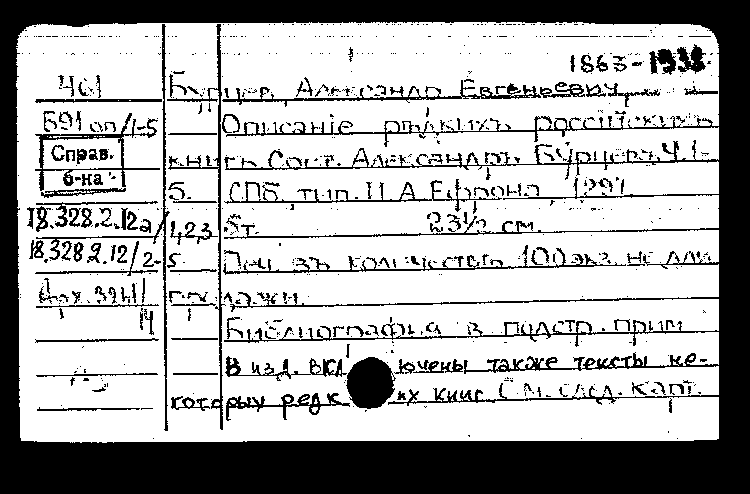 1863-1938
461 Бурцев, Александр Евгеньевич
Б91 оп/1-5 Описанiе рѣдкихъ россiйскихъ
Справ. б-на
книгъ. Сост. Александръ Бурцевъ. Ч. 1-
5. СПБ., тип. И. А. Ефрона, 1897
18.328.2.12а/1,2,3 5т. 23½ см.
18.328.2.12/2-5 Печ. въ количествѣ 100 экз. не для
Арх. 3941/14 продажи.
Библиография в подстр. прим.
В изд. включены также тексты не-
которых редких книг См. след. карт.